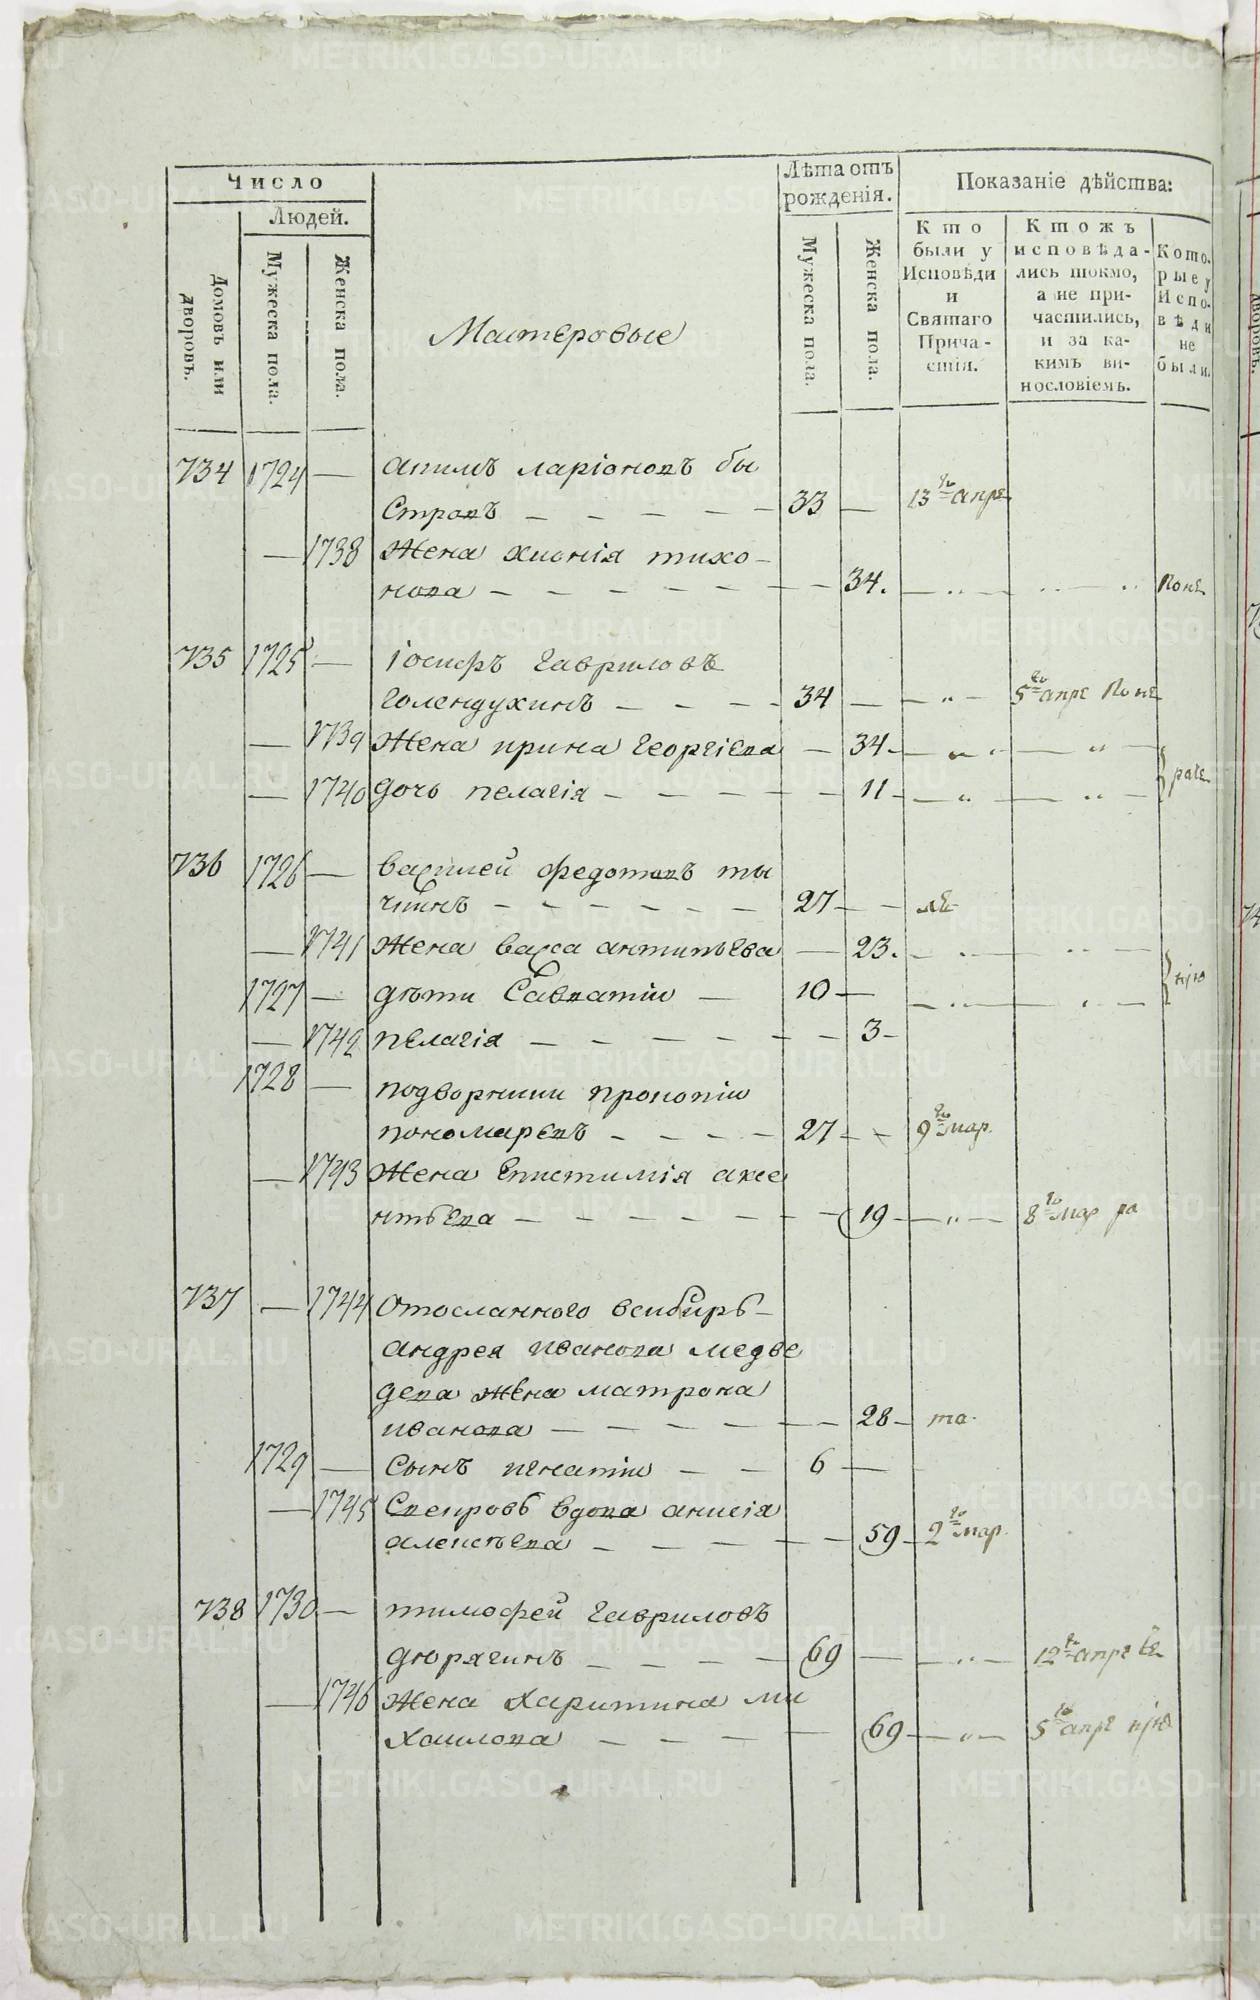 Число
Людей.
Домовъ или дворовъ.
Мужеска пола.
Женска пола.
Мастеровые
Лѣта отъ рожденія.
Мужеска пола.
Женска пола.
Показаніе дѣйства:
Кто были у Исповѣди и Святаго Причастія.
Ктожъ исповѣдались токмо, а не причастились, и за какимъ винословіемъ.
Которые у Исповѣди не были.
734 1724 — акимъ ларіоновъ бы
стровъ — — — — — 33 — 13го апре
— 1738 жена хионія тихо-
нова — — — — — — 34. — „ — „ поне
735 1725 — іосифъ гавриловъ
голендухинъ — — — — 34 — — „ — 5го апре поне
— 1739 жена ирина георгіева — 34 — „ — „
— 1740 дочь пелагія — — — — — 11 — „ — „ — раче
736 1726 — василей федотовъ ты
чкинъ — — — — — — 27 — —
— 1741 жена васса антипьева — 23. — „ — „ —
1727 — дѣти савватіи — 10 — — „ — „ —
— 1742 пелагія — — — — — — 3 —
1728 — подворники прокопіи
пономаревъ — — — — 27 — — 9го мар.
— 1743 жена епистимія аксе
нтьева — — — — — — 19 — „ — 8го мар ра
737 — 1744 отосланного всибирь
андрея иванова медве
дева жена матрона
иванова — — — — — 28 — та.
1729 — сынъ игнатіи — — 6 —
— 1745 свекровь вдова анисія
алексѣева — — — — — 59 — 2го мар.
738 1730 — тимофей гавриловъ
дюрягинъ — — — — 69 — — „ — 12го апре
— 1746 жена харитина ми
хаилова — — — — 69 — „ — 5го апре
METRIKI.GASO-URAL.RU